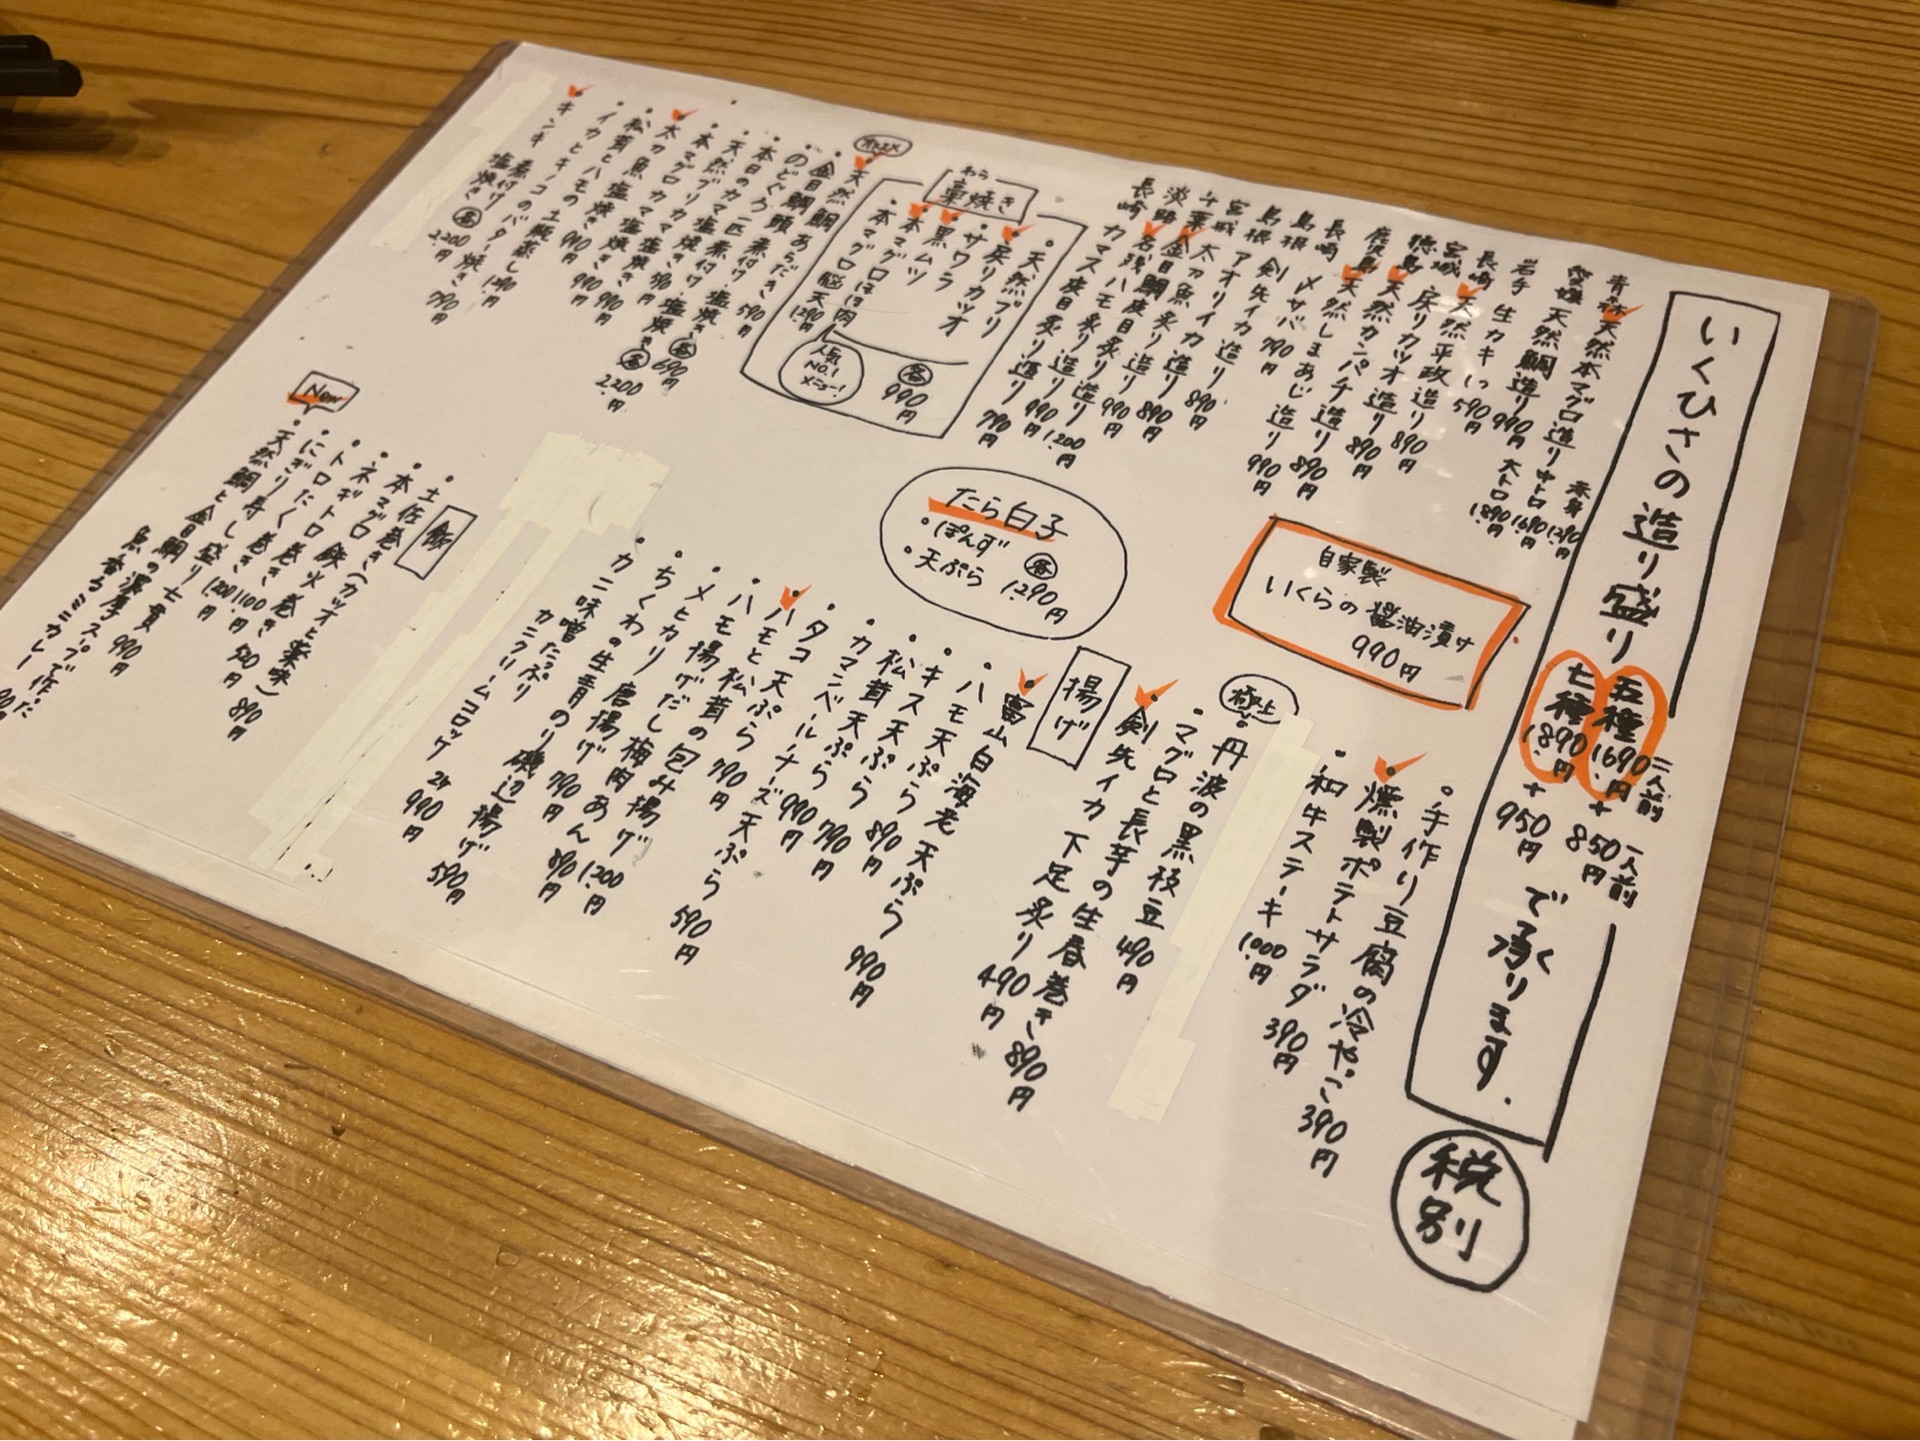 いくひさの造り盛り 五種 1690円 + 850円 七種 1890円 + 950円 で承ります.
二人前 一人前
税別
青森 天然本マグロ造り 赤身 1290円 中トロ 1690円 大トロ 1890円
愛媛 天然鯛造り 990円
岩手 生カキ 1つ 590円
長崎 天然平政造り 890円
宮城 戻りカツオ造り 890円
徳島 天然カンパチ造り 890円
鹿児島 天然しまあじ造り 990円
長崎 〆サバ 790円
島根 剣先イカ造り
宮城 アオリイカ造り 890円
千葉 太刀魚炙り造り 890円
淡路 金目鯛皮目炙り造り 990円
名残ハモ炙り造り 1200円
長崎 カマス皮目炙り造り 990円
自家製
いくらの醤油漬け
990円
・手作り豆腐の冷やっこ 390円
・燻製ポテトサラダ 390円
・和牛ステーキ 1000円
極上
丹波の黒枝豆 490円
・マグロと長芋の生春巻き 890円
・剣先イカ下足炙り 490円
わら
藁焼き
・天然ブリ
・戻りカツオ
・サワラ
・黒ムツ
・本マグロほほ肉
各 990円
・本マグロ脳天 1290円
人気
NO.1
メニュー!
たら白子
・ぽんず
・天ぷら
各 1290円
揚げ
・富山白海老天ぷら 990円
・ハモ天ぷら 890円
・キス天ぷら 790円
・松茸天ぷら 990円
・カマンベールチーズ天ぷら 590円
・タコ天ぷら 790円
・ハモと松茸の包み揚げ 1200円
・ハモ揚げだし梅肉あん 890円
・メヒカリ唐揚げ 790円
・ちくわの生青のり磯辺揚げ 590円
・カニ味噌たっぷり
カニクリームコロッケ 2ヶ 990円
オススメ
・天然鯛あらだき 590円
・金目鯛頭煮付け・塩焼き 各 690円
・のどぐろ一匹煮付け・塩焼き 各 2200円
・本日のカマ塩焼き 590円
・天然ブリカマ塩焼き 990円
・本マグロカマ塩焼き 990円
・太刀魚塩焼き 990円
・松茸とハモの土瓶蒸し 1290円
・イカとキノコのバター焼き 790円
・キンキ 煮付け 塩焼き 各 2200円
飯
・土佐巻き(カツオと薬味) 890円
・本マグロ鉄火巻き
・ネギトロ巻き
・トロたく巻き
・にぎり寿し盛り七貫
New
・天然鯛と金目鯛の濃厚スープで作った
魚の香るミニカレー